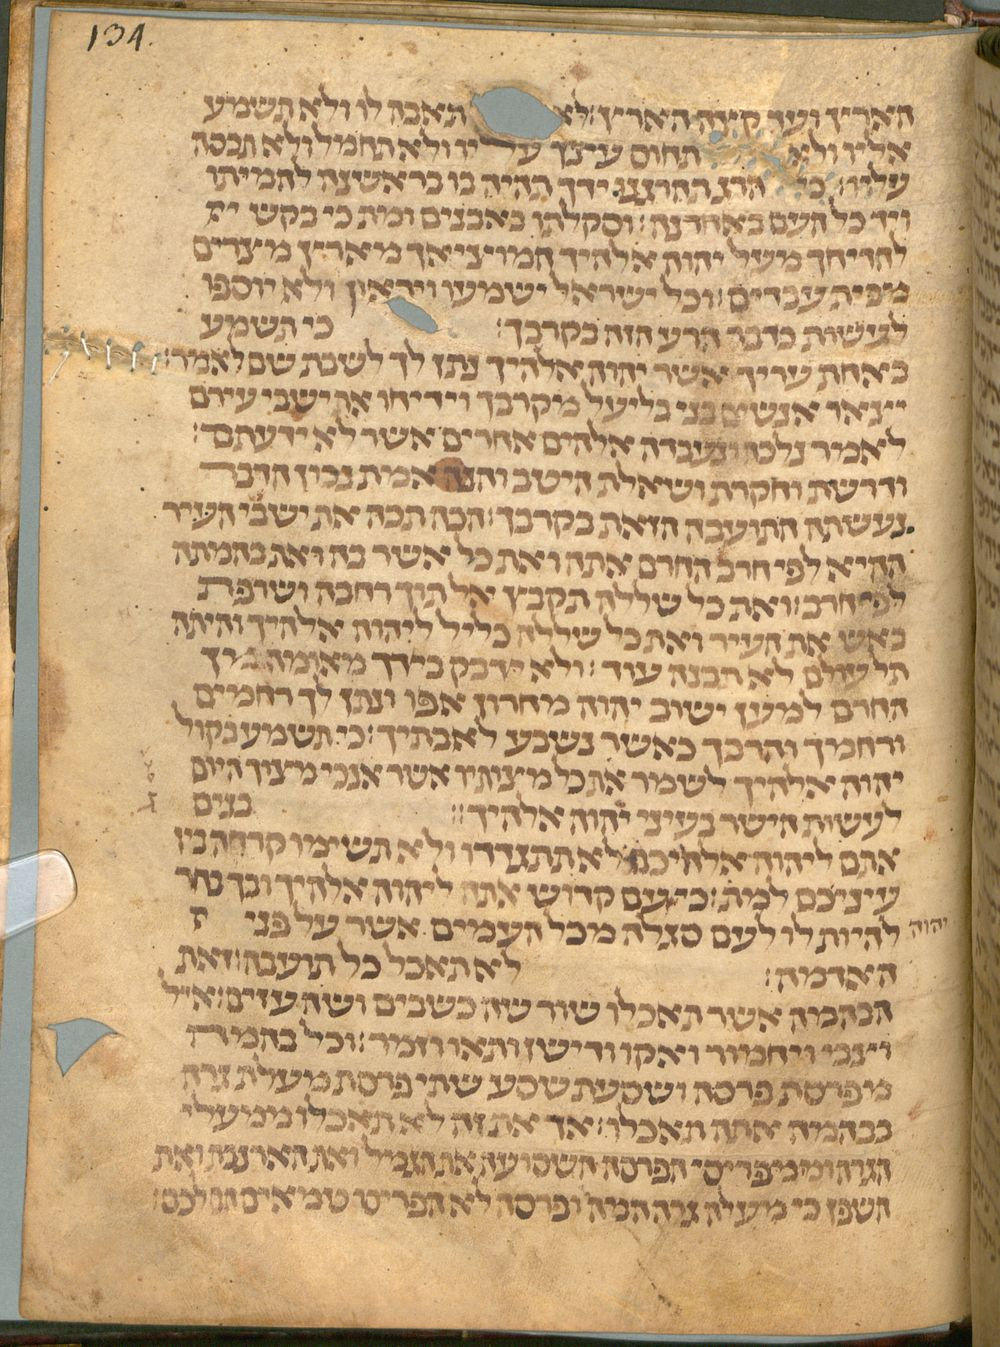 134.
הארץ ועד קצה הארץ: לא תאבה לו ולא תשמע
אליו ולא תחוס עינך עליו ולא תחמל ולא תכסה
עליו: כי הרג תהרגנו ידך תהיה בו בראשנה להמיתו
ויד כל העם באחרנה: וסקלתו באבנים ומת כי בקש ית
להדיחך מעל יהוה אלהיך המוציאך מארץ מצרים
מבית עבדים: וכל ישראל ישמעו ויראון ולא יוספו
לעשות כדבר הרע הזה בקרבך: כי תשמע
באחת עריך אשר יהוה אלהיך נתן לך לשבת שם לאמר:
יצאו אנשים בני בליעל מקרבך וידיחו את ישבי עירם
לאמר נלכה ונעבדה אלהים אחרים אשר לא ידעתם:
ודרשת וחקרת ושאלת היטב והנה אמת נכון הדבר
נעשתה התועבה הזאת בקרבך: הכה תכה את ישבי העיר
ההיא לפי חרב החרם אתה ואת כל אשר בה ואת בהמתה
לפי חרב: ואת כל שללה תקבץ אל תוך רחבה ושרפת
באש את העיר ואת כל שללה כליל ליהוה אלהיך והיתה
תל עולם לא תבנה עוד: ולא ידבק בידך מאומה מן
החרם למען ישוב יהוה מחרון אפו ונתן לך רחמים
ורחמך והרבך כאשר נשבע לאבתיך: כי תשמע בקול
יהוה אלהיך לשמר את כל מצותיו אשר אנכי מצוך היום
לעשות הישר בעיני יהוה אלהיך: בנים
אתם ליהוה אלהיכם לא תתגדדו ולא תשימו קרחה בין
עיניכם למת: כי עם קדוש אתה ליהוה אלהיך ובך בחר
יהוה להיות לו לעם סגלה מכל העמים אשר על פני ה
האדמה: לא תאכל כל תועבה: זאת
הבהמה אשר תאכלו שור שה כשבים ושה עזים: איל
וצבי ויחמור ואקו ודישן ותאו וזמר: וכל בהמה
מפרסת פרסה ושסעת שסע שתי פרסת מעלת גרה
בבהמה אתה תאכלו: אך את זה לא תאכלו ממעלי
הגרה וממפריסי הפרסה השסועה את הגמל ואת הארנבת ואת
השפן כי מעלה גרה המה ופרסה לא הפריסו טמאים הם לכם: